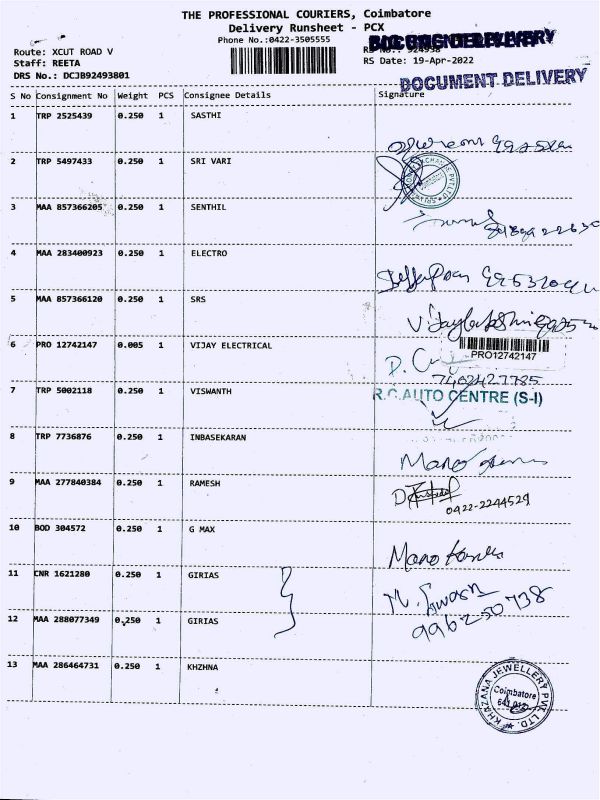 THE PROFESSIONAL COURIERS, Coimbatore
Delivery Runsheet - PCX
Phone No.:0422-3505555
Route: XCUT ROAD V
Staff: REETA
RS Date: 19-Apr-2022
DRS No.: DCJB92493801
DOCUMENT DELIVERY
S No Consignment No Weight PCS Consignee Details Signature
1 TRP 2525439 0.250 1 SASTHI
2 TRP 5497433 0.250 1 SRI VARI
3 MAA 857366205 0.250 1 SENTHIL
4 MAA 283400923 0.250 1 ELECTRO
5 MAA 857366120 0.250 1 SRS
6 PRO 12742147 0.005 1 VIJAY ELECTRICAL
PRO12742147
7402427785
7 TRP 5002118 0.250 1 VISWANTH
R.C.AUTO CENTRE (S-I)
8 TRP 7736876 0.250 1 INBASEKARAN
9 MAA 277840384 0.250 1 RAMESH
0422-2244529
10 BOD 304572 0.250 1 G MAX
11 CNR 1621280 0.250 1 GIRIAS
12 MAA 288077349 0.250 1 GIRIAS
13 MAA 286464731 0.250 1 KHZHNA
KHAZANA JEWELLERY PVT. LTD.
Coimbatore